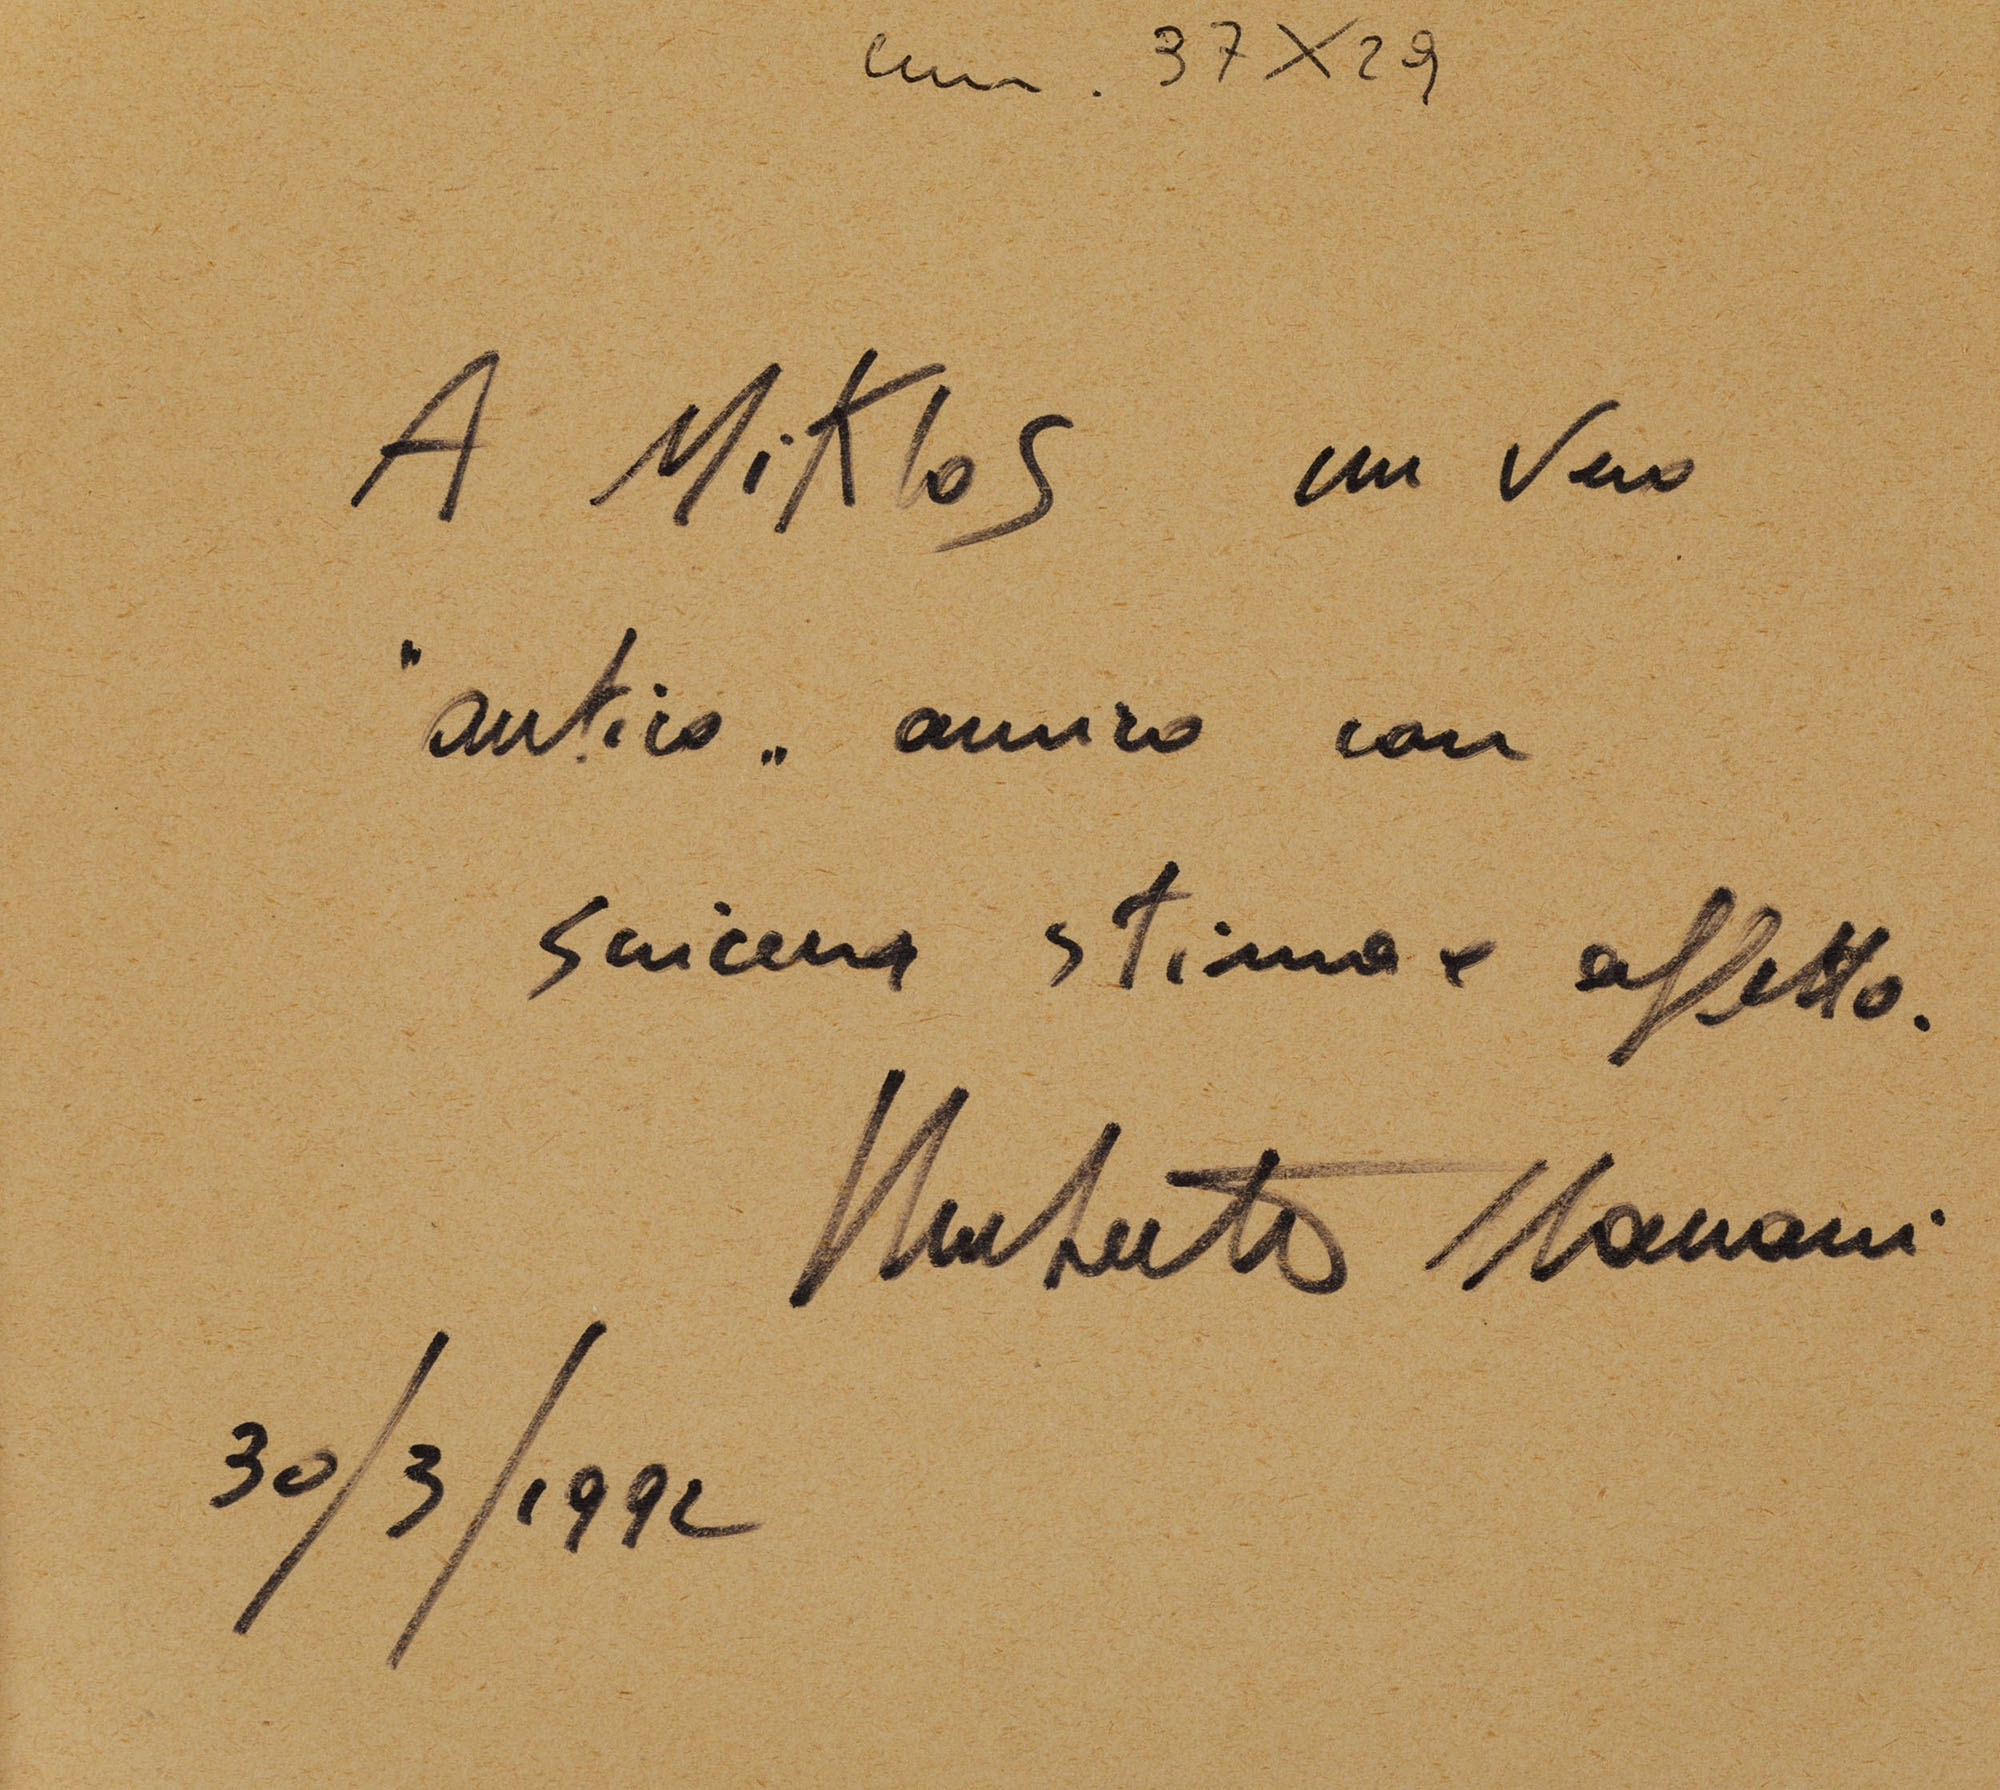 cm. 37X29
A Miklos un vero
"antico" amico con
sincera stima e affetto.
Umberto Mariani
30/3/1992